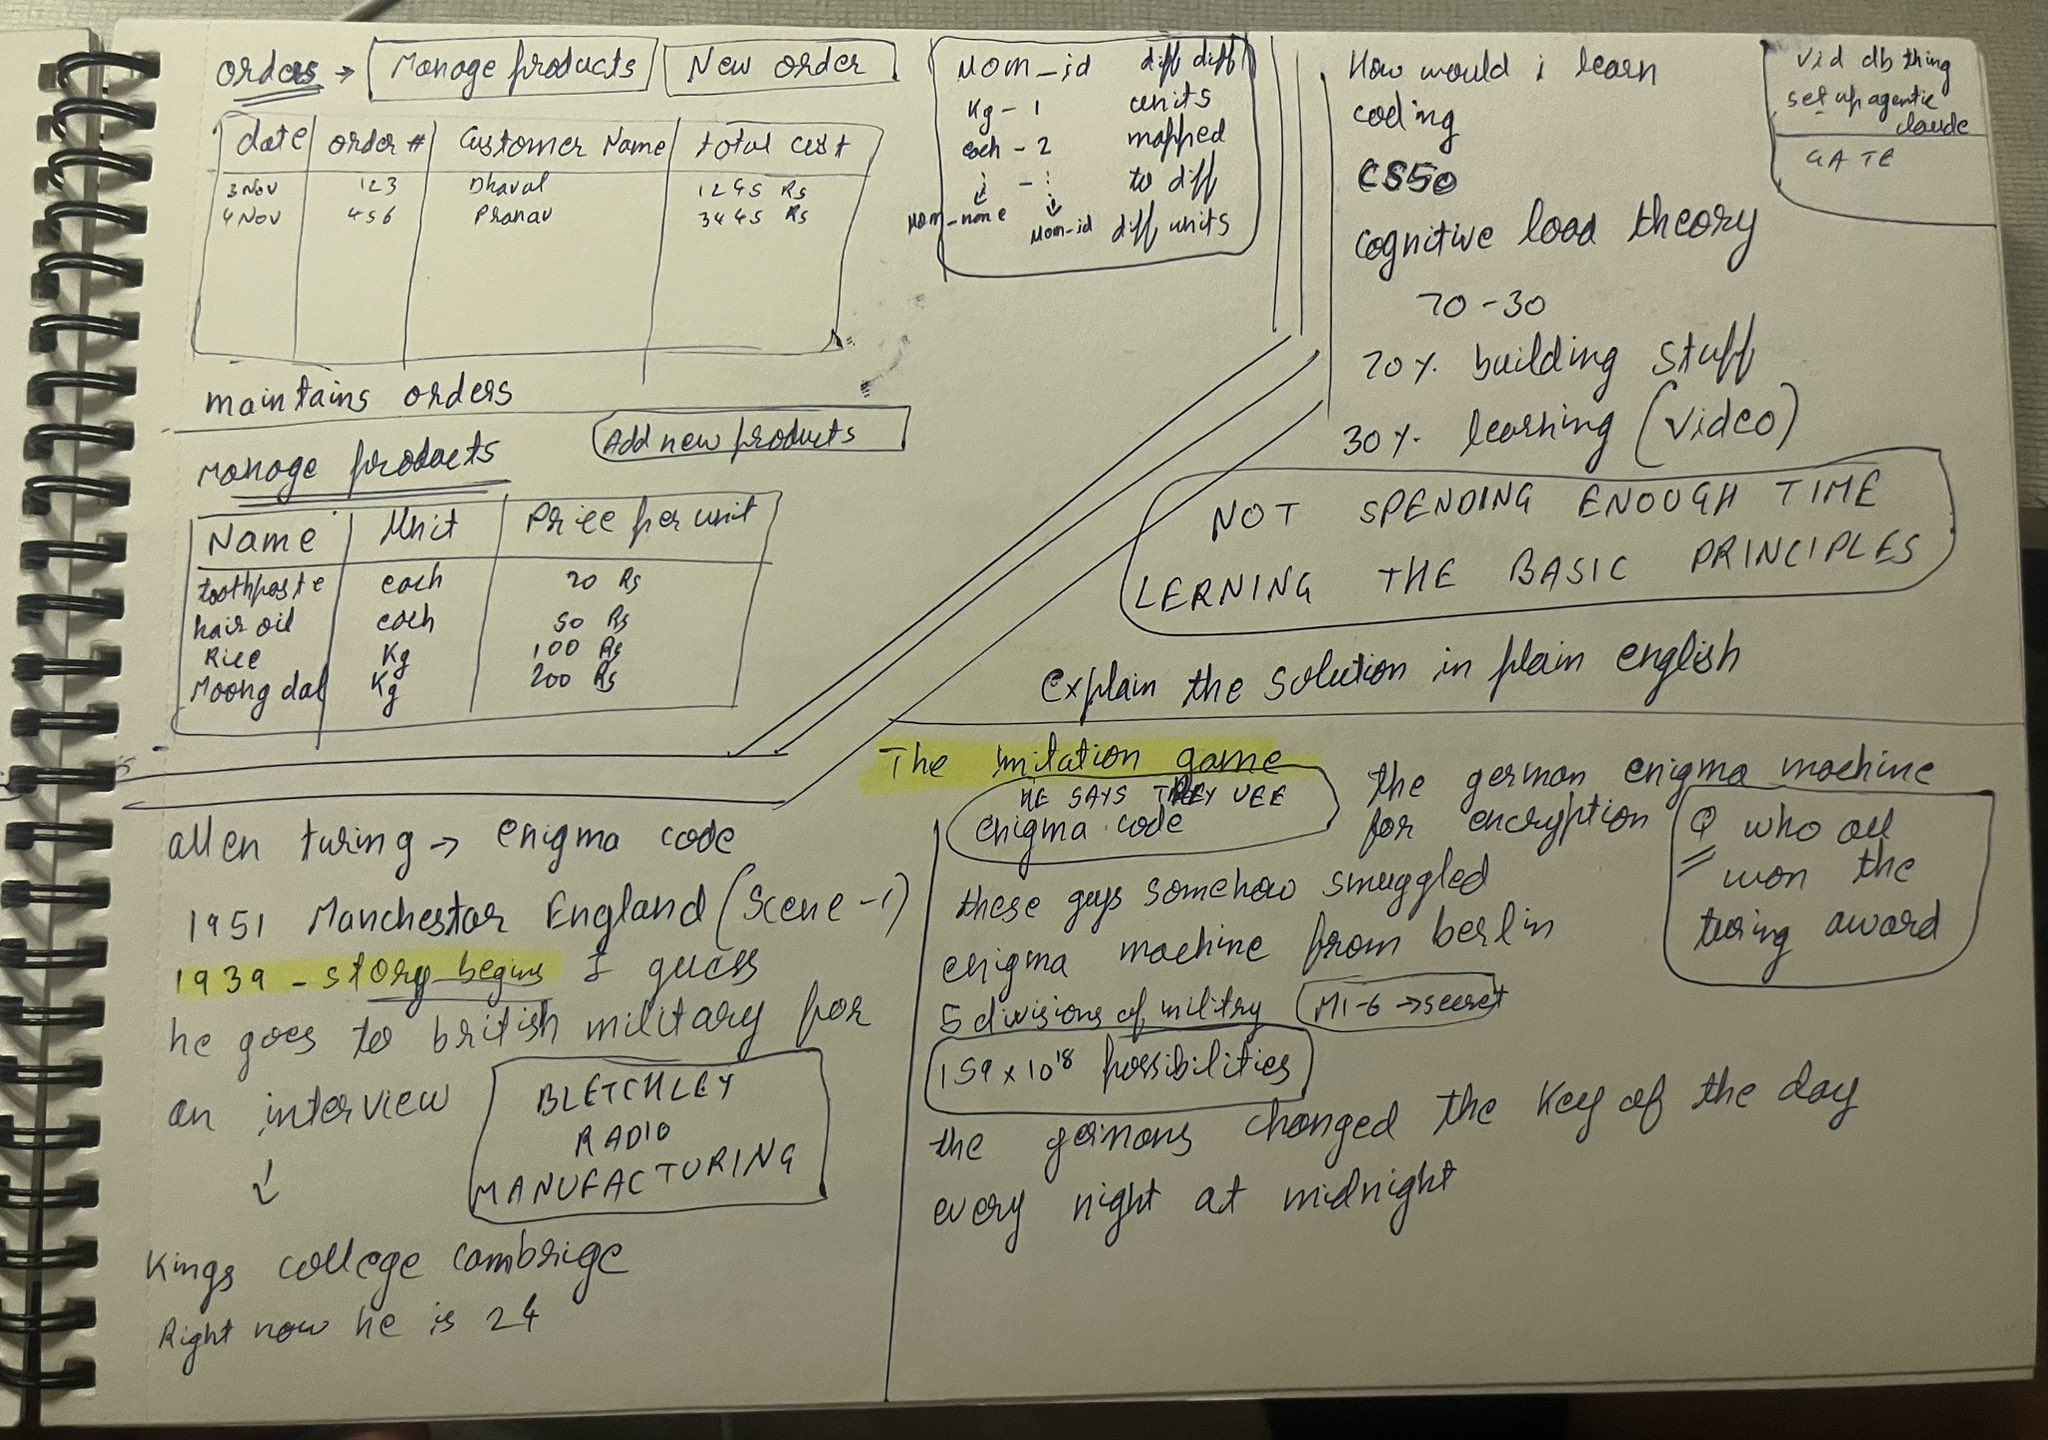 orders → Manage products New order
date order # Customer Name total cost
3 Nov 123 Dhaval 1245 Rs
4 Nov 456 Pranav 3445 Rs
maintains orders
Manage products Add new products
Name Unit Price per unit
toothpaste each 20 Rs
hair oil each 50 Rs
Rice Kg 100 Rs
Moong dal Kg 200 Rs
uom_id diff diff
Kg - 1 units
each - 2 mapped
to diff
uom_name uom_id diff units
How would i learn
coding
CS50
cognitive load theory
70-30
70%. building stuff
30%. learning (video)
vid db thing
set up agentic
claude
GATE
NOT SPENDING ENOUGH TIME
LERNING THE BASIC PRINCIPLES
explain the solution in plain english
allen turing → enigma code
1951 Manchestar England (scene-1)
1939 - story begins I guess
he goes to british military for
an interview
BLETCHLEY
RADIO
MANUFACTURING
Kings college cambrige
Right now he is 24
The imitation game
HE SAYS THEY USE
enigma code
the german enigma machine
for encryption
these guys somehow smuggled
enigma machine from berlin
5 divisions of militry MI-6 → secret
159 x 10¹⁸ possibilities
the germans changed the key of the day
every night at midnight
Q who all
won the
turing award